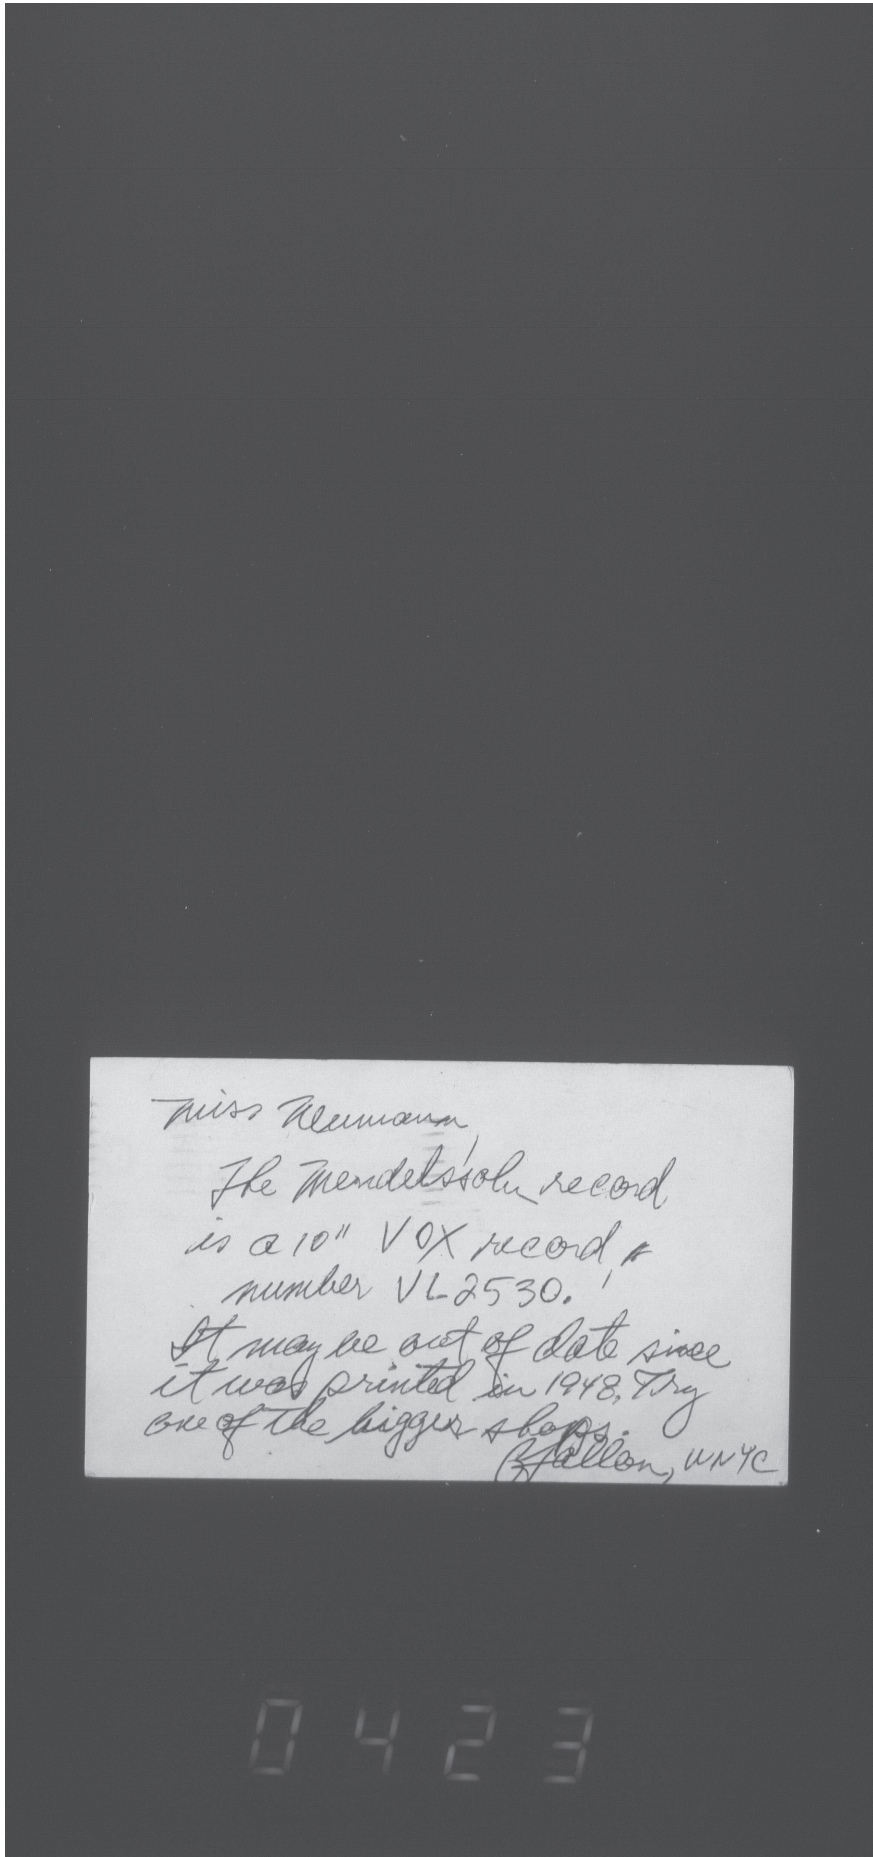 Miss Neumann,
The Mendelssohn record
is a 10" VOX record,
number VL2530.
It may be out of date since
it was printed in 1948. Try
one of the bigger shops.
Fallon, WNYC
0423